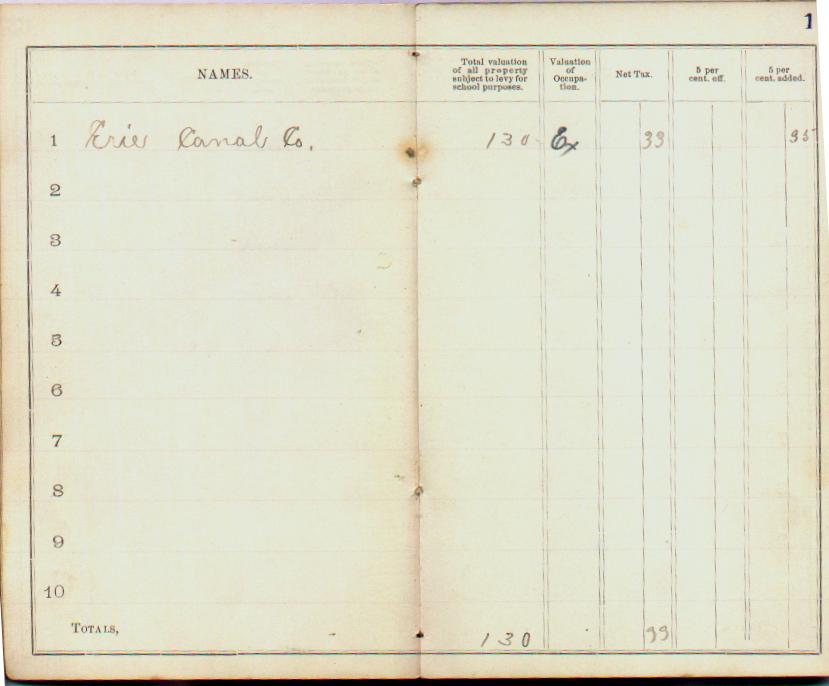 1
NAMES.
Total valuation
of all property
subject to levy for
school purposes.
Valuation
of
Occupa-
tion.
Net Tax.
5 per
cent. off.
5 per
cent. added.
1 Erie Canal Co. 130 Ex 33 35
2
3
4
5
6
7
8
9
10
TOTALS, 130 33